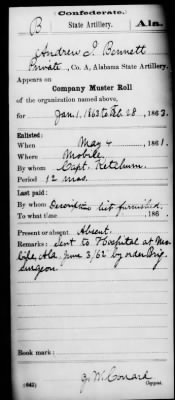 Confederate.
B State Artillery. Ala.
Andrew J. Bennett
Private, Co. A, Alabama State Artillery.
Appears on
Company Muster Roll
of the organization named above,
for Jan. 1, 1863 to Feb. 28, 1863.
Enlisted:
When May 4, 1861.
Where Mobile
By whom Capt. Ketchum.
Period 12 mos.
Last paid:
By whom Descriptive list furnished.
To what time , 186 .
Present or absent Absent.
Remarks: Sent to Hospital at
Ala, June 3/62 by order Brig
Surgeon
Book mark:
(642) J. W. Conard
Copyist.